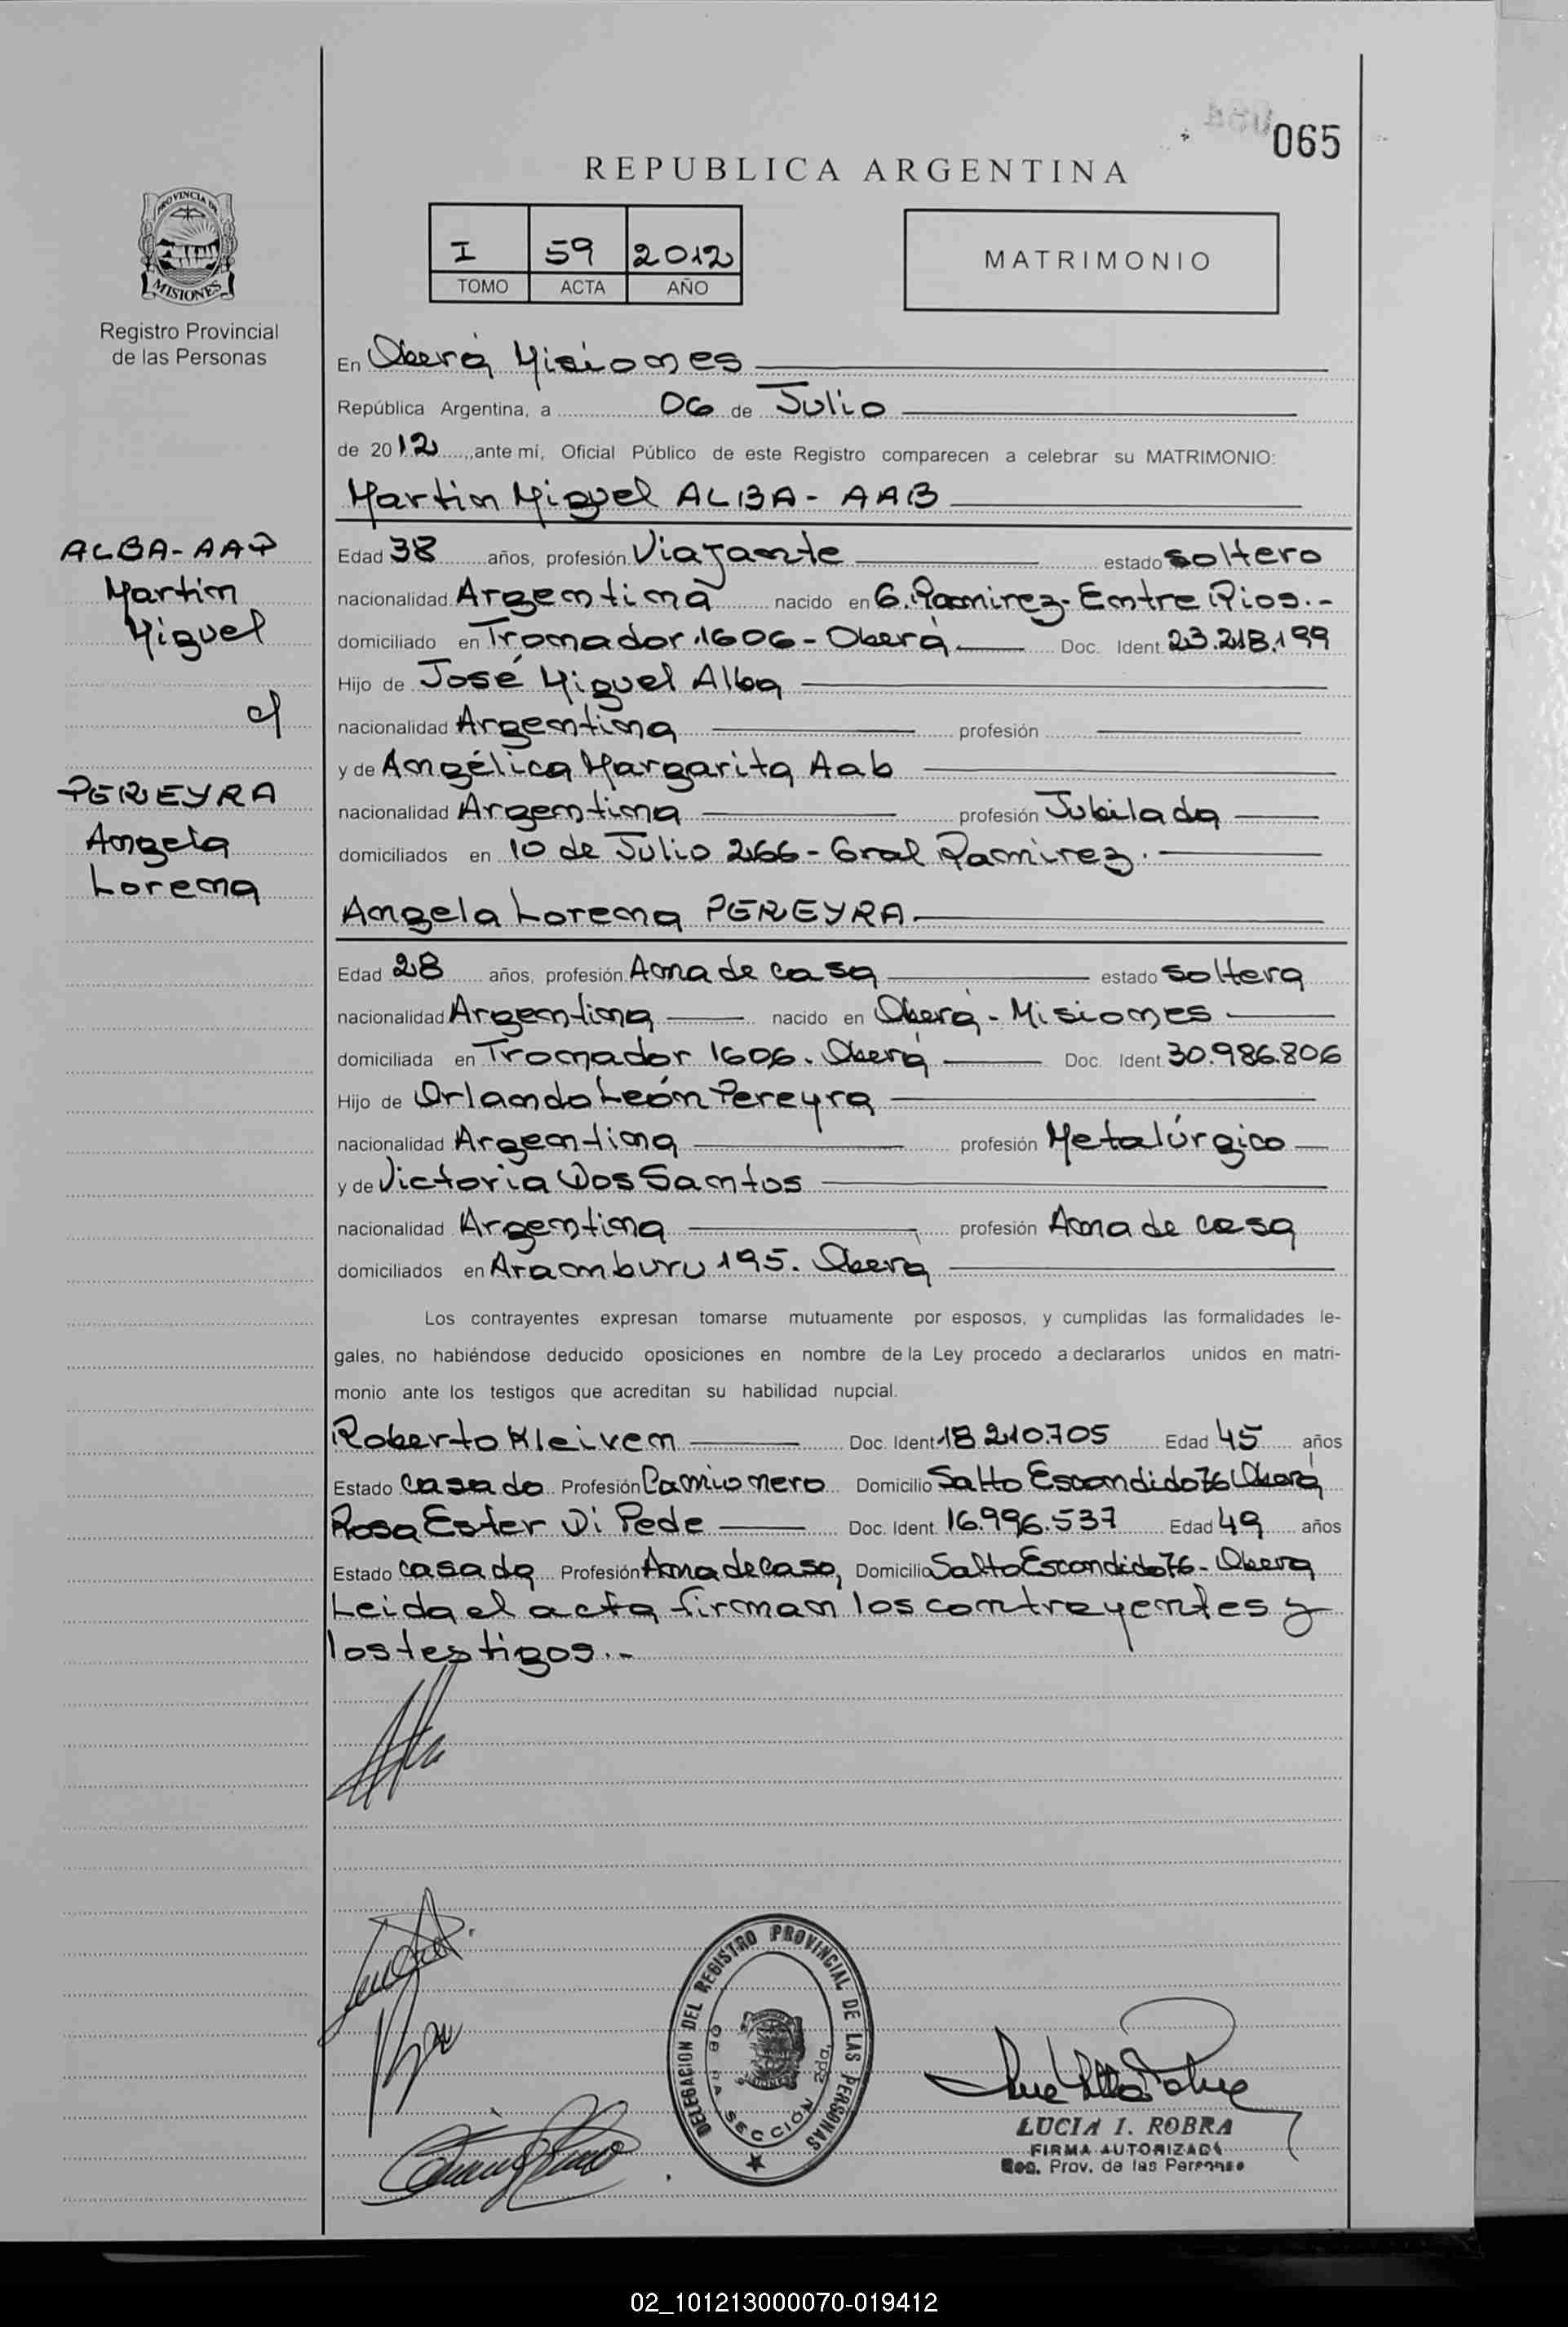 065
REPUBLICA ARGENTINA
I 59 2012
TOMO ACTA AÑO
MATRIMONIO
PROVINCIA DE
MISIONES
Registro Provincial
de las Personas
ALBA-AAB
Martin
Miguel
c/
PEREYRA
Angela
Lorena
En Oberá Misiones
República Argentina, a 06 de Julio
de 2012, ante mí, Oficial Público de este Registro comparecen a celebrar su MATRIMONIO:
Martin Miguel ALBA - AAB
Edad 38 años, profesión Viajante estado soltero
nacionalidad Argentina nacido en G. Ramirez - Entre Rios.-
domiciliado en Tronador 1606 - Oberá Doc. Ident. 23.218.199
Hijo de José Miguel Alba
nacionalidad Argentina profesión
y de Angélica Margarita Aab
nacionalidad Argentina profesión Jubilada
domiciliados en 10 de Julio 266 - Gral Ramirez.
Angela Lorena PEREYRA
Edad 28 años, profesión Ama de casa estado soltera
nacionalidad Argentina nacido en Oberá - Misiones
domiciliada en Tronador 1606. Oberá Doc. Ident. 30.986.806
Hijo de Orlando León Pereyra
nacionalidad Argentina profesión Metalúrgico
y de Victoria Dos Santos
nacionalidad Argentina profesión Ama de casa
domiciliados en Aramburu 195. Oberá
Los contrayentes expresan tomarse mutuamente por esposos, y cumplidas las formalidades le-
gales, no habiéndose deducido oposiciones en nombre de la Ley procedo a declararlos unidos en matri-
monio ante los testigos que acreditan su habilidad nupcial.
Roberto Kleiven Doc. Ident. 18.210.705 Edad 45 años
Estado casado Profesión Camionero Domicilio Salto Escondido 76 Oberá
Rosa Ester Di Pede Doc. Ident. 16.996.537 Edad 49 años
Estado casada Profesión Ama de casa, Domicilio Salto Escondido 76 - Obera
Leida el acta firman los contrayentes y
los testigos.-
DELEGACION DEL REGISTRO PROVINCIAL DE LAS PERSONAS
SECCION 2da.
LUCIA I. ROBRA
FIRMA AUTORIZADA
Reg. Prov. de las Personas
02_101213000070-019412